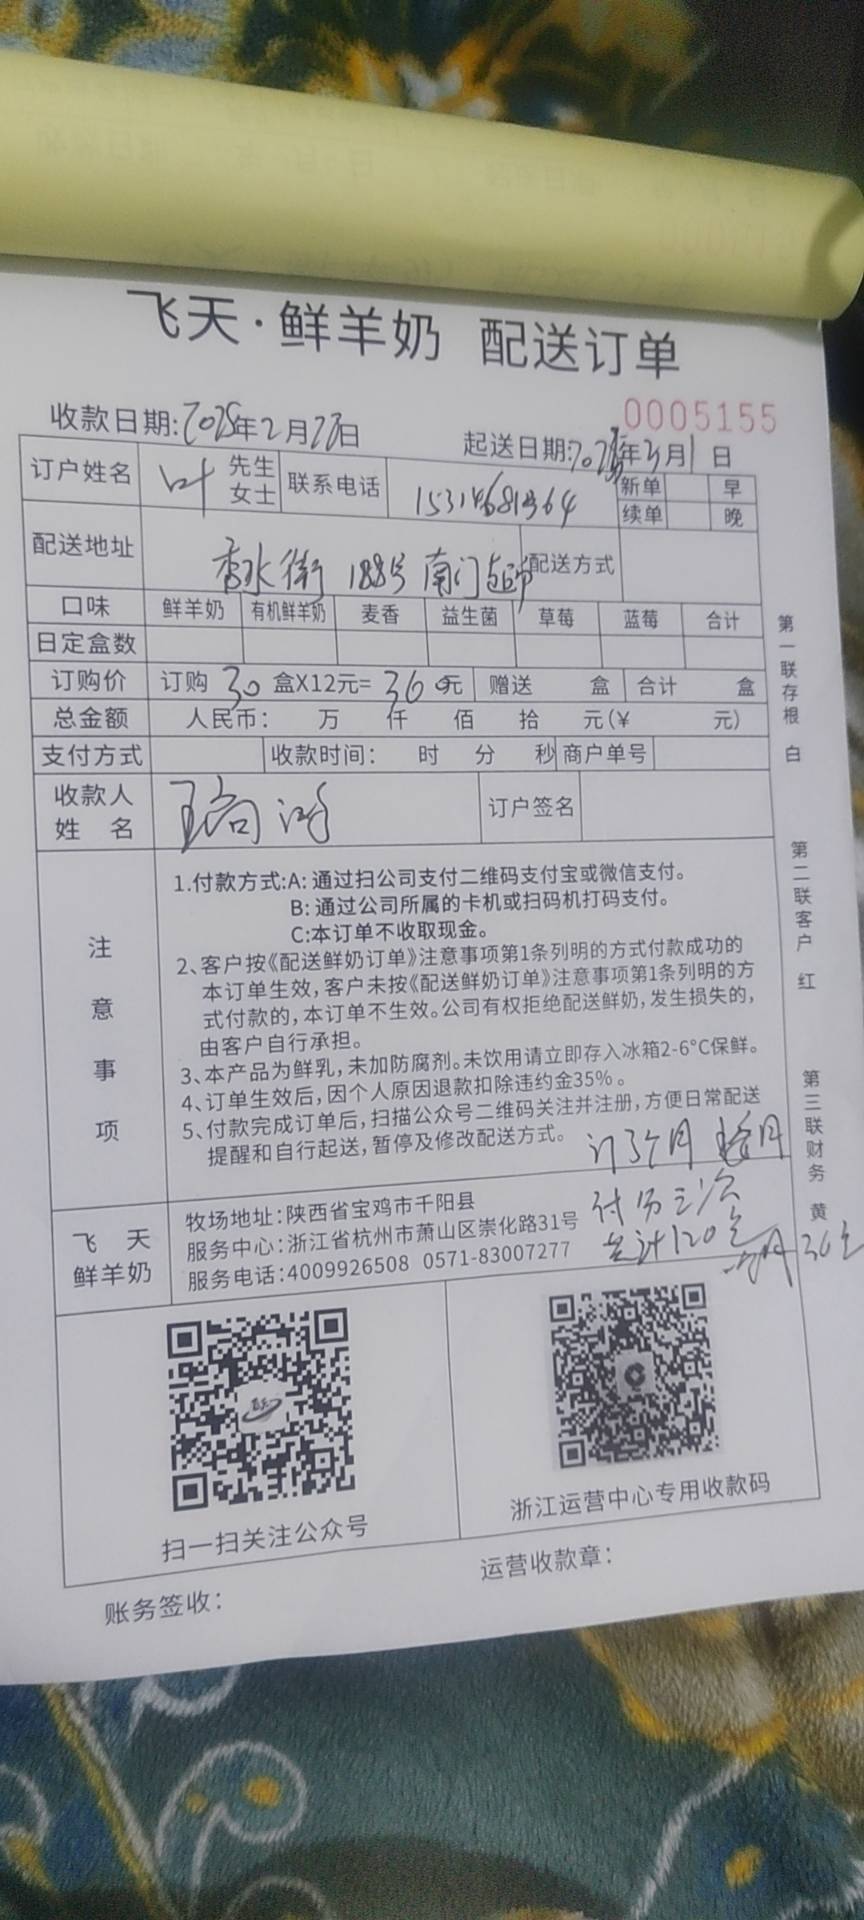 飞天·鲜羊奶 配送订单
0005155
收款日期:2025年2月27日
起送日期: 年3月1日
订户姓名 叶 先生 女士 联系电话 新单 早
续单 晚
配送地址 香水街 188号 南门 配送方式
口味 鲜羊奶 有机鲜羊奶 麦香 益生菌 草莓 蓝莓 合计
日定盒数
订购价 订购 30 盒X12元= 360元 赠送 盒 合计 盒
总金额 人民币: 万 仟 佰 拾 元(¥ 元)
支付方式 收款时间: 时 分 秒 商户单号
收款人
姓 名
订户签名
注意事项
1.付款方式:A: 通过扫公司支付二维码支付宝或微信支付。
B: 通过公司所属的卡机或扫码机打码支付。
C:本订单不收取现金。
2、客户按《配送鲜奶订单》注意事项第1条列明的方式付款成功的
本订单生效,客户未按《配送鲜奶订单》注意事项第1条列明的方
式付款的,本订单不生效。公司有权拒绝配送鲜奶,发生损失的,
由客户自行承担。
3、本产品为鲜乳,未加防腐剂。未饮用请立即存入冰箱2-6°C保鲜。
4、订单生效后,因个人原因退款扣除违约金35%。
5、付款完成订单后,扫描公众号二维码关注并注册,方便日常配送
提醒和自行起送,暂停及修改配送方式。
订3个月 月
付 三次
总计120
一个月 30
飞 天
鲜羊奶
牧场地址:陕西省宝鸡市千阳县
服务中心:浙江省杭州市萧山区崇化路31号
服务电话:4009926508 0571-83007277
扫一扫关注公众号
浙江运营中心专用收款码
账务签收:
运营收款章:
第一联存根 白
第二联客户 红
第三联财务 黄